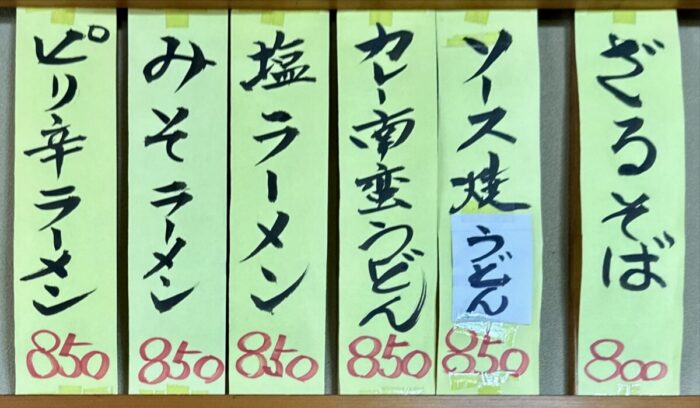 ざるそば
800
ソース焼うどん
850
カレー南蛮うどん
850
塩ラーメン
850
みそラーメン
850
ピリ辛ラーメン
850